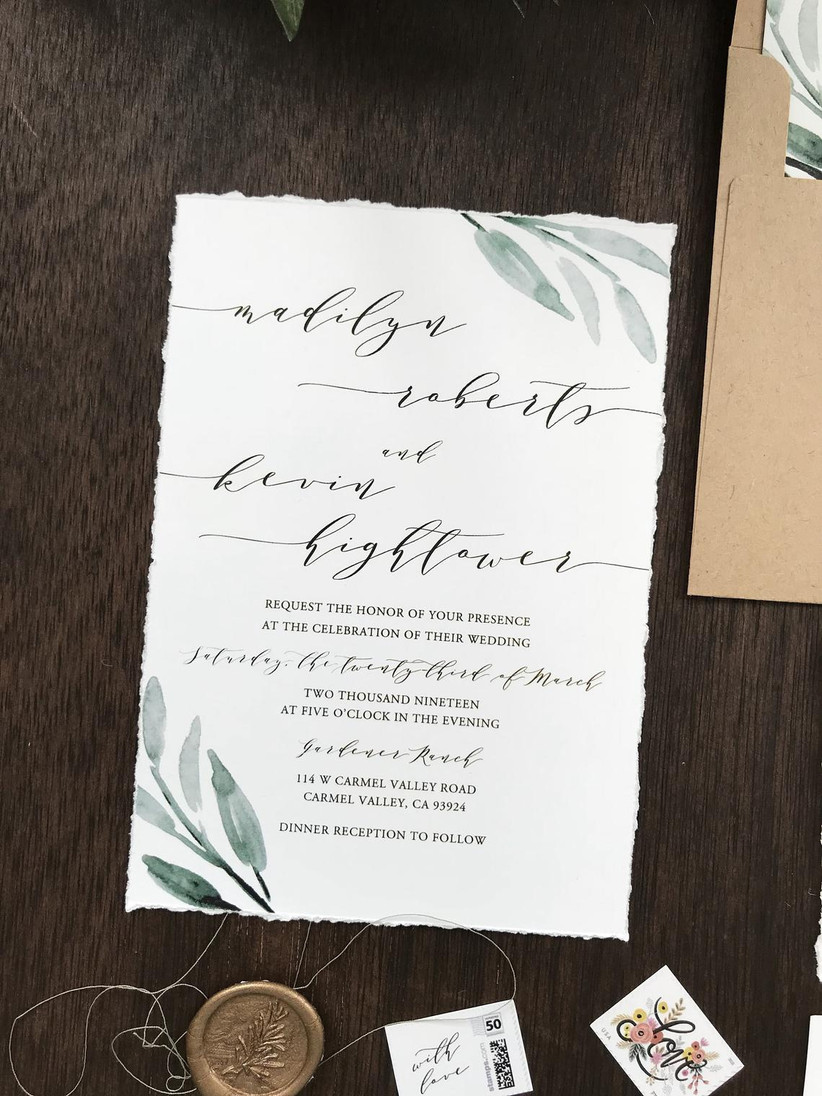 madilyn
roberts
and
kevin
hightower
REQUEST THE HONOR OF YOUR PRESENCE
AT THE CELEBRATION OF THEIR WEDDING
Saturday, the twenty-third of March
TWO THOUSAND NINETEEN
AT FIVE O'CLOCK IN THE EVENING
Gardener Ranch
114 W CARMEL VALLEY ROAD
CARMEL VALLEY, CA 93924
DINNER RECEPTION TO FOLLOW
with
love
50
stamps.com
USA
Love